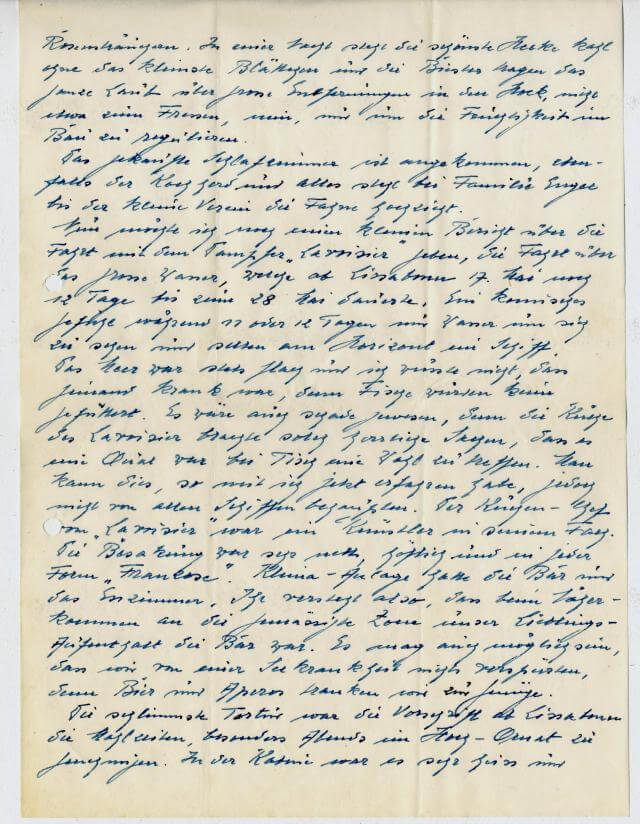 Rosensträngen. In einer Nacht steht die schönste Hecke kahl
ohne das kleinste Blättchen und die Biester tragen das
ganze Laub über grosse Entfernungen in den Stock, nicht
etwa zum Fressen, nein, nur um die Feuchtigkeit im
Bau zu regulieren.
Das gekaufte Schlafzimmer ist angekommen, eben-
falls der Kochherd und alles steht bei Familie Engel
bis der kleine Verein die Fahne hochzieht.
Nun möchte ich noch einen kleinen Bericht über die
Fahrt mit dem Dampfer „Lavoisier" geben, die Fahrt über
das grosse Wasser, welche ab Lissabonn 17. Mai noch
12 Tage bis zum 28 Mai dauerte. Ein komisches
Gefühl während 11 oder 12 Tagen nur Wasser um sich
zu sehen und selten am Horizont ein Schiff.
Das Meer war stets flach und ich wüsste nicht, dass
jemand krank war, denn Fische wurden keine
gefüttert. Es wäre auch schade gewesen, denn die Küche
des Lavoisier brachte solch herrliche Sachen, dass es
eine Qual war bei Tisch eine Wahl zu treffen. Man
kann dies, so wie ich jetzt erfahren habe, jedoch
nicht von allen Schiffen behaupten. Der Küchen-Chef
von „Lavoisier" war ein Künstler in seinem Fach.
Die Besatzung war sehr nett, höflich und in jeder
Form „Francose". Klima-Anlage hatte die Bar und
das Esszimmer, Ihr versteht also, dass beim Näher-
kommen an die gemässigte Zone unser Lieblings-
Aufenthalt die Bar war. Es mag auch möglich sein,
dass wir von einer Seekrankheit nichts verspürten,
denn Bier und Aperos tranken wir zur Genüge.
Die schlimmste Tortur war die Vorschrift ab Lissabonn
die Mahlzeiten, besonders Abends im Hoch-Ornat zu
genehmigen. In der Kabine war es sehr heiss und